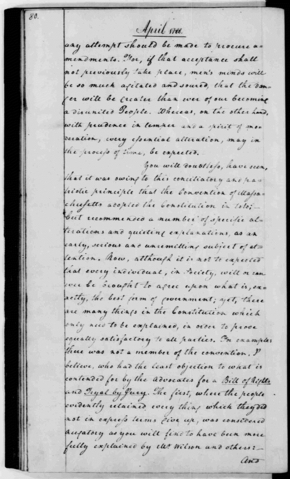 80.
April 1788.
any attempt should be made to procure a-
mendments. For, if that acceptance shall
not previously take place, men's minds will
be so much agitated and soured, that the dan-
ger will be greater than ever of our becoming
a disunited People. Whereas, on the other hand,
with prudence in temper and a spirit of mo-
deration, every essential alteration, may in
the process of time, be expected.
You will doubtless, have seen,
that it was owing to this conciliatory and pa-
triotic principle that the Convention of Massa-
chusetts adopted the Constitution in toto;
but recommended a number of specific al-
terations and quieting explanations, as an
early, serious and unremitting subject of at-
tention. Now, although it is not to expected
that every individual, in Society, will or can
ever be brought to agree upon what is, ex-
actly, the best form of government; yet, there
are many things in the Constitution which
only need to be explained, in order to prove
equally satisfactory to all parties. For example:
there was not a member of the convention, I
believe, who had the least objection to what is
contended for by the advocates for a Bill of Rights
and Tryal by Jury. The first, where the people
evidently retained every thing which they did
not in express terms give up, was considered
nugatory as you will find to have been more
fully explained by Mr. Wilson and others:—
And